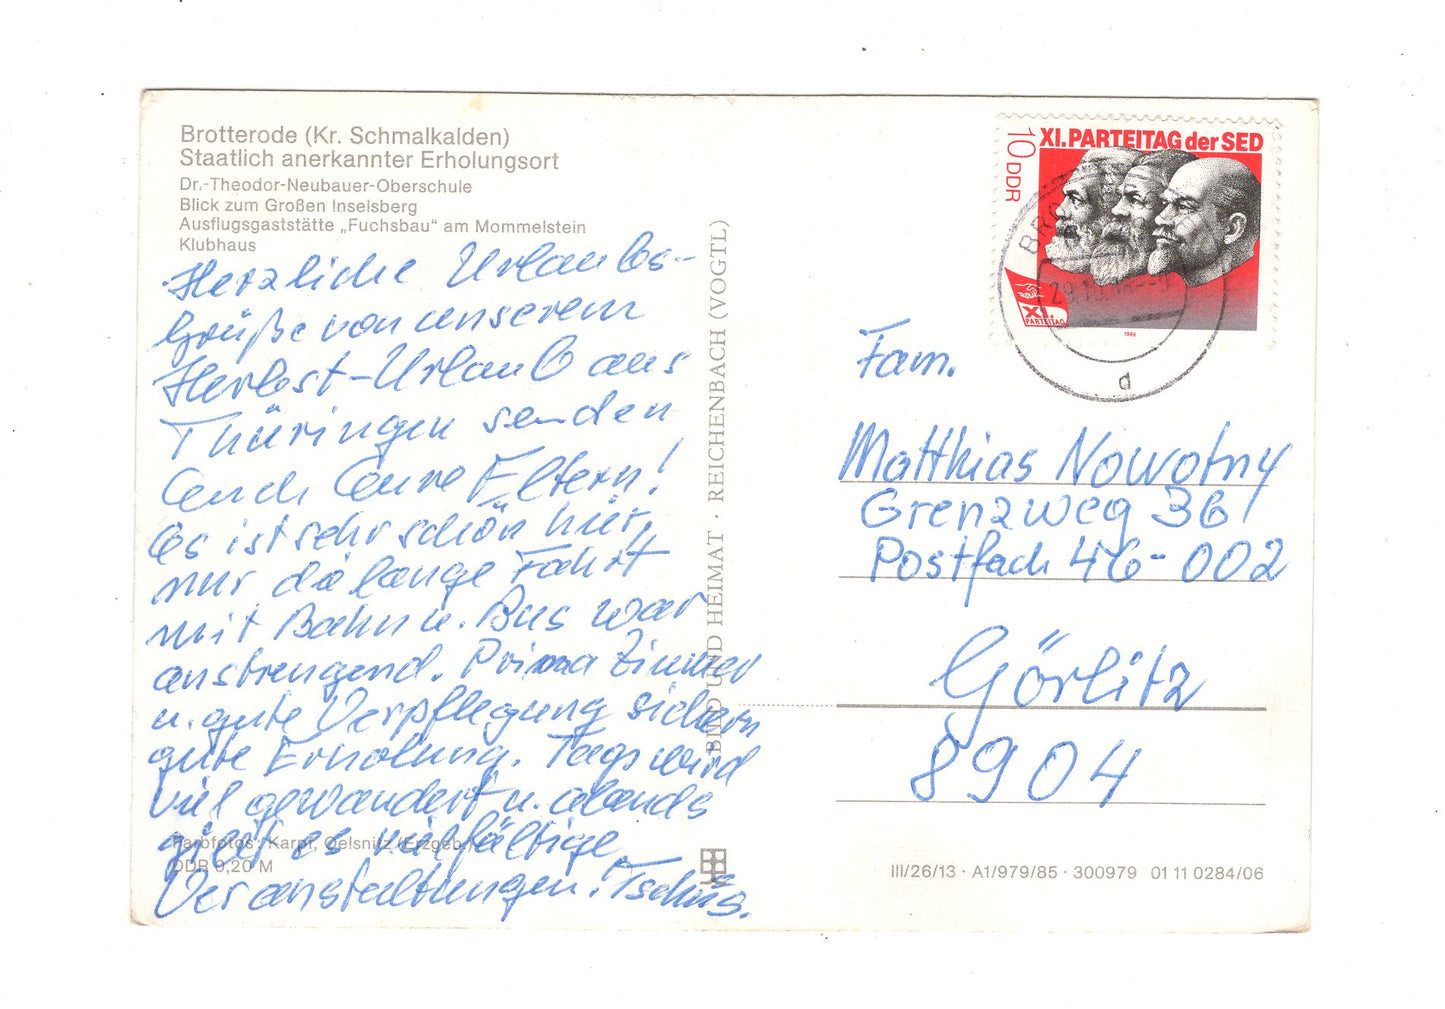 Brotterode (Kr. Schmalkalden)
Staatlich anerkannter Erholungsort
Dr.-Theodor-Neubauer-Oberschule
Blick zum Großen Inselsberg
Ausflugsgaststätte „Fuchsbau“ am Mommelstein
Klubhaus
Herzliche Urlaubs-
grüße von unserem
Herbst-Urlaub aus
Thüringen senden
Euch Eure Eltern!
Es ist sehr schön hier,
nur die lange Fahrt
mit Bahn u. Bus war
anstrengend. Prima Zimmer
u. gute Verpflegung sichern
gute Erholung. Tags wird
viel gewandert u. abends
gibt es vielfältige
Veranstaltungen! Tschüs.
Farbfotos: Karpf, Oelsnitz (Erzgeb.)
DDR 0,20 M
BILD UND HEIMAT · REICHENBACH (VOGTL)
XI. PARTEITAG der SED
10 DDR
XI.
PARTEITAG
1986
d
Fam.
Matthias Nowotny
Grenzweg 36
Postfach 46-002
Görlitz
8904
III/26/13 · A1/979/85 · 300979 01 11 0284/06